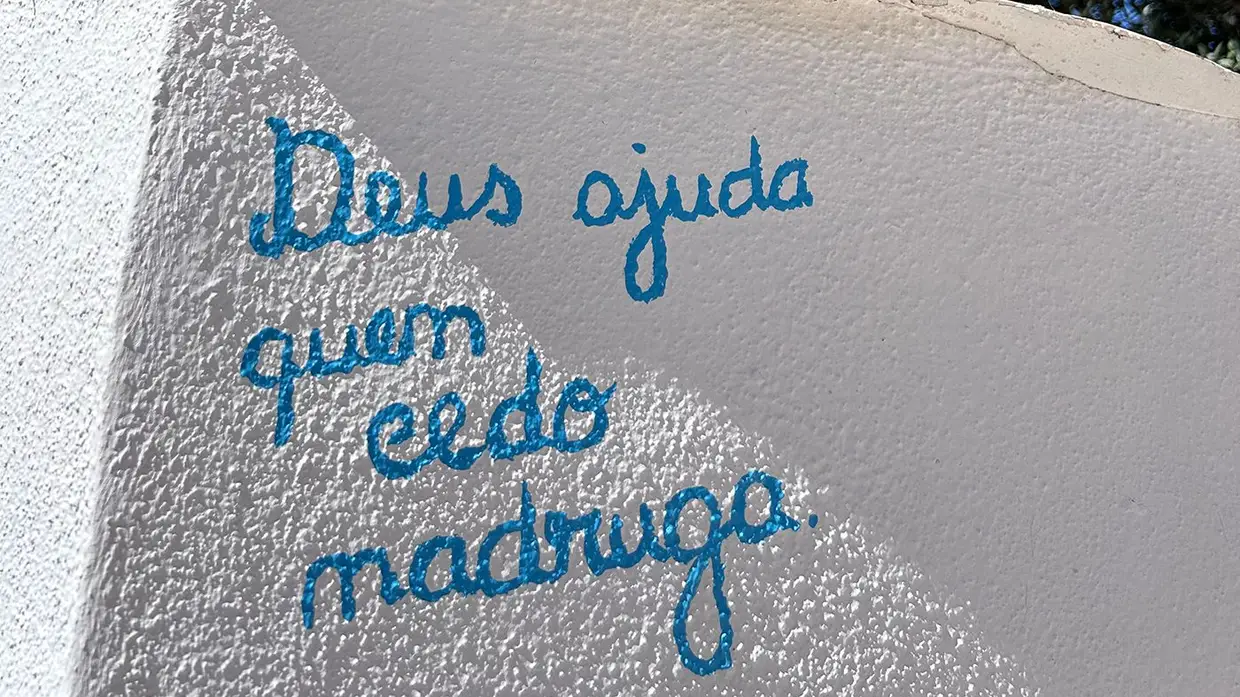 Deus ajuda
quem
cedo
madruga.